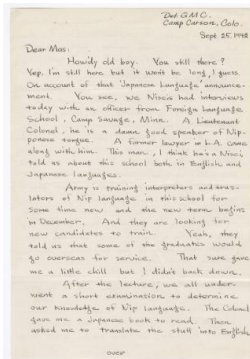 Det. G.M.C.
Camp Carson, Colo.
Sept. 25, 1942
Dear Mas:
Howdy old boy. You still there?
Yep, I'm still here but it won't be long, I guess.
On account of that Japanese Language announce-
ment. You see, we Niseis had interviews
today with an officer from Foreign Language
School, Camp Savage, Minn. A Lieutenant
Colonel, he is a damn good speaker of Nip-
ponese tongue. A former lawyer in L.A. came
along with him. This man, I think he's a Nisei
told us about this school both in English and
Japanese languages.
Army is training interpreters and trans-
lators of Nip language in this school for
some time now and the new term begins
in December. And they are looking for
new candidates to train. Yeah, they
told us that some of the graduates would
go overseas for service. That sure gave
me a little chill but I didn't back down.
After the lecture, we all under-
went a short examination to determine
our knowledge of Nip language. The Colonel
gave me a Japanese book to read. Then
asked me to translate the stuff into English
over